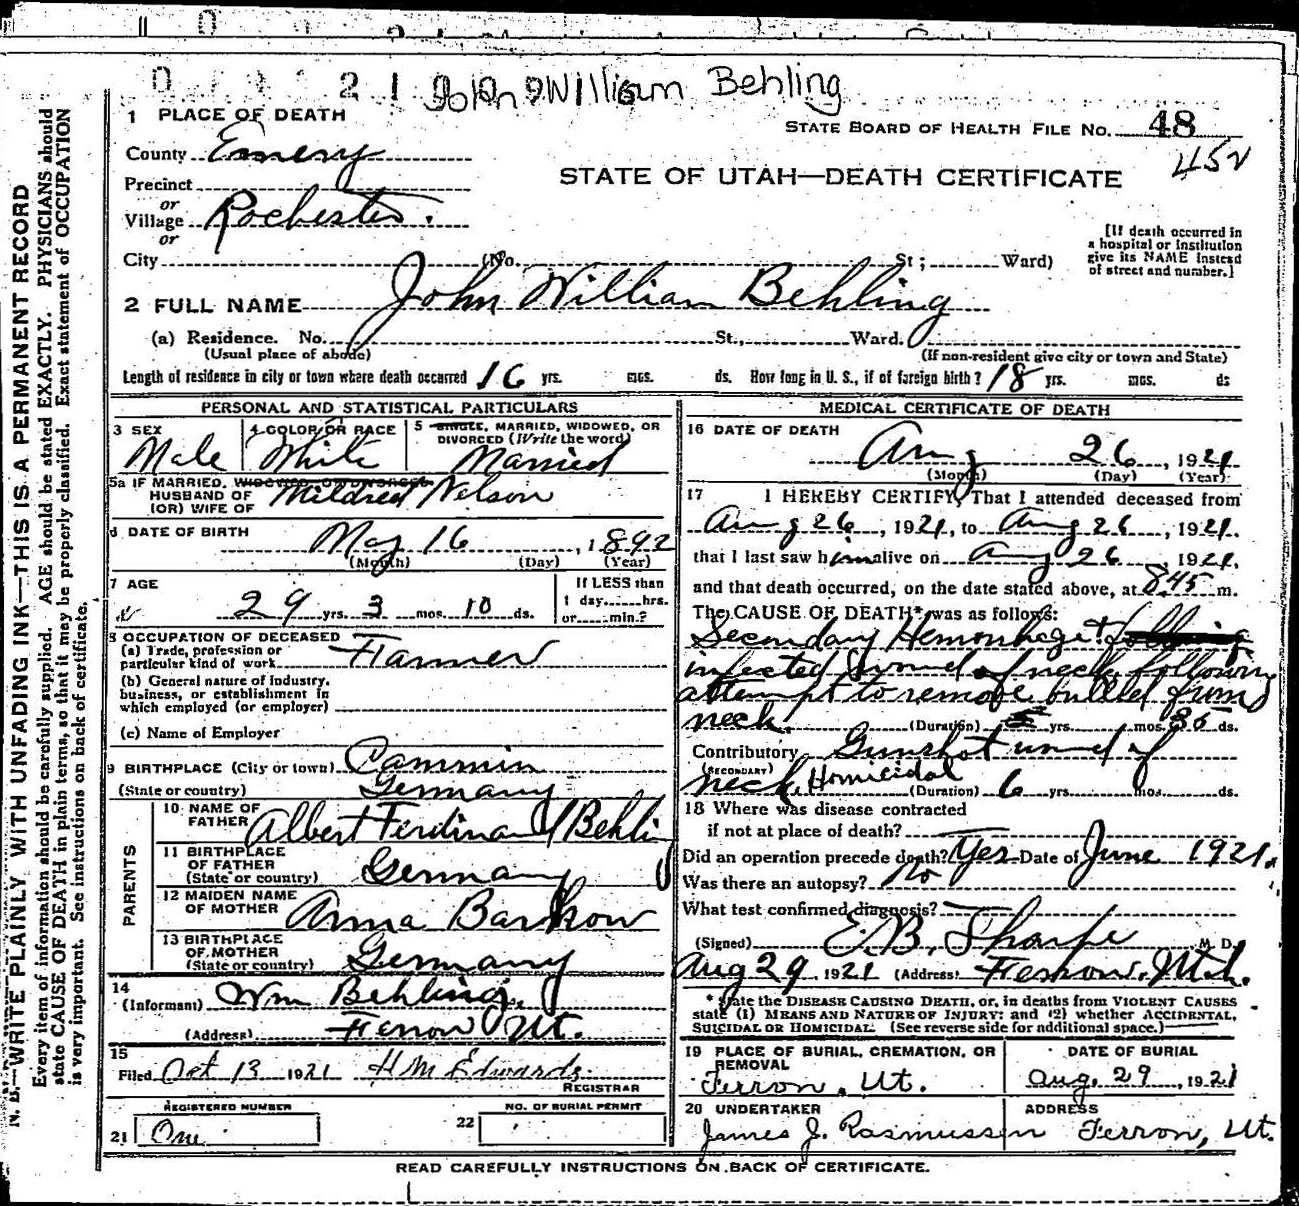 John William Behling
1 PLACE OF DEATH
STATE BOARD OF HEALTH FILE No. 48
452
County Emery
STATE OF UTAH—DEATH CERTIFICATE
Precinct
or
Village Rochester.
or
City (No. St; Ward)
[If death occurred in
a hospital or institution
give its NAME instead
of street and number.]
2 FULL NAME John William Behling
(a) Residence. No. St., Ward.
(Usual place of abode) (If non-resident give city or town and State)
Length of residence in city or town where death occurred 16 yrs. mos. ds. How long in U. S., if of foreign birth? 18 yrs. mos. ds
PERSONAL AND STATISTICAL PARTICULARS
3 SEX
Male
4 COLOR OR RACE
White
5 SINGLE, MARRIED, WIDOWED, OR
DIVORCED (Write the word)
Married
5a IF MARRIED, WIDOWED, OR DIVORCED
HUSBAND OF
(OR) WIFE OF
Mildred Nelson
6 DATE OF BIRTH
May 16, 1892
(Month) (Day) (Year)
7 AGE
29 yrs. 3 mos. 10 ds.
If LESS than
1 day......hrs.
or......min.?
8 OCCUPATION OF DECEASED
(a) Trade, profession or
particular kind of work Farmer
(b) General nature of industry,
business, or establishment in
which employed (or employer)
(c) Name of Employer
9 BIRTHPLACE (City or town) Cammin
(State or country) Germany
PARENTS
10 NAME OF
FATHER Albert Ferdinand Behling
11 BIRTHPLACE
OF FATHER
(State or country) Germany
12 MAIDEN NAME
OF MOTHER Anna Barkow
13 BIRTHPLACE
OF MOTHER
(State or country) Germany
14
(Informant) Wm Behling.
(Address) Ferron Ut.
15
Filed Oct 13 1921 H M Edwards.
REGISTRAR
REGISTERED NUMBER
21 One
NO. OF BURIAL PERMIT
22
MEDICAL CERTIFICATE OF DEATH
16 DATE OF DEATH
Aug 26, 1921
(Month) (Day) (Year)
17 I HEREBY CERTIFY, That I attended deceased from
Aug 26, 1921, to Aug 26, 1921.
that I last saw him alive on Aug 26 1921.
and that death occurred, on the date stated above, at 845 m.
The CAUSE OF DEATH* was as follows:
Secondary Hemorrhage &
infected wound of neck following
attempt to remove bullet from
neck. (Duration) yrs. mos. 35 ds.
Contributory Gunshot wound of
(SECONDARY)
neck. Homicidal (Duration) 6 yrs. mos. ds.
18 Where was disease contracted
if not at place of death?
Did an operation precede death? Yes Date of June 1921.
Was there an autopsy? No
What test confirmed diagnosis?
(Signed) E. B. Sharpe M. D.
Aug 29, 1921 (Address) Ferron, Utah.
* State the DISEASE CAUSING DEATH, or, in deaths from VIOLENT CAUSES
state (1) MEANS AND NATURE OF INJURY; and (2) whether ACCIDENTAL,
SUICIDAL OR HOMICIDAL. (See reverse side for additional space.)
19 PLACE OF BURIAL, CREMATION, OR
REMOVAL
Ferron, Ut.
DATE OF BURIAL
Aug. 29, 1921
20 UNDERTAKER
James J. Rasmussen
ADDRESS
Ferron, Ut.
READ CAREFULLY INSTRUCTIONS ON BACK OF CERTIFICATE.
N. B.—WRITE PLAINLY WITH UNFADING INK—THIS IS A PERMANENT RECORD
Every item of information should be carefully supplied. AGE should be stated EXACTLY. PHYSICIANS should
state CAUSE OF DEATH in plain terms, so that it may be properly classified. Exact statement of OCCUPATION
is very important. See instructions on back of certificate.